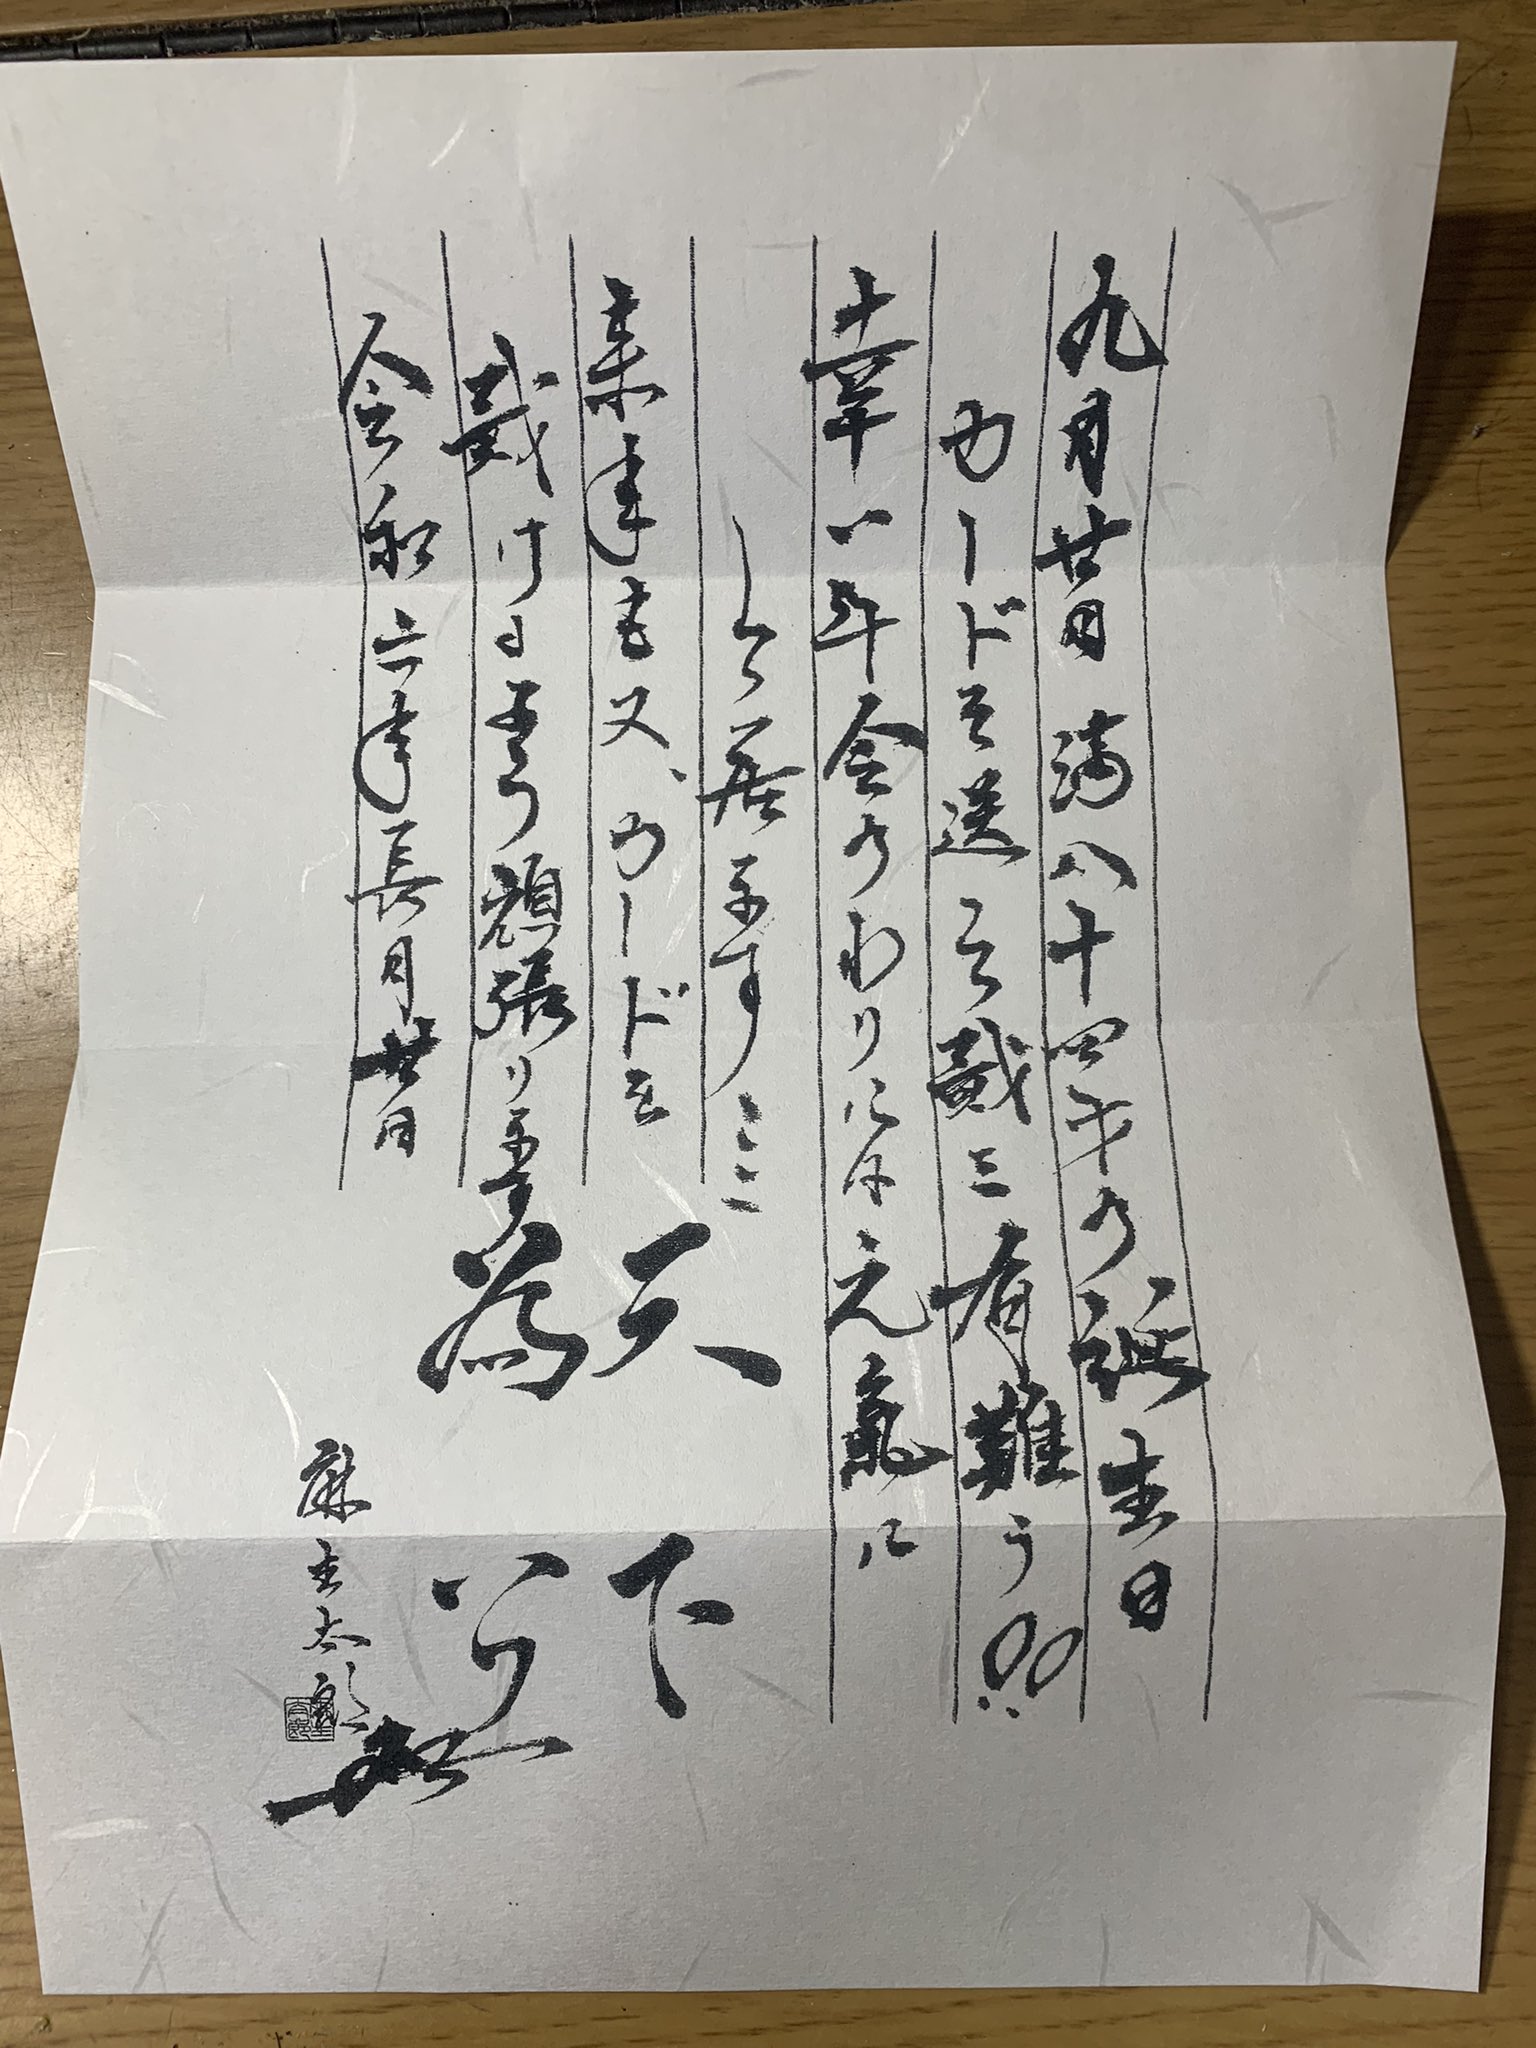 九月廿日 満八十四才の誕生日
カードを送って戴き有難う!!
幸い年令のわりには元氣に
して居ますし
来年も又、カードを
戴ける様 頑張ります
令和六年長月廿日
天下
為公
麻生太郎